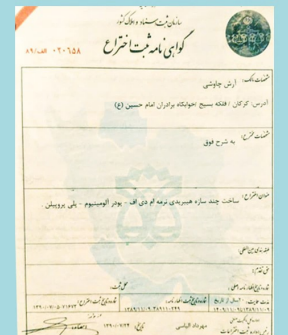 سازمان ثبت اسناد و املاک کشور
گواهی نامه ثبت اختراع
۰۲۰۶۵۸ الف/۸۹
مشخصات مالک:
آرش چاوشی
آدرس: گرگان / فلکه بسیج /خوابگاه برادران امام حسین (ع)
مشخصات مخترع:
به شرح فوق
عنوان اختراع:
ساخت چند سازه هیبریدی نرمه ام دی اف - پودر آلومینیوم - پلی پروپیلن
طبقه بندی بین المللی
حق تقدم:
محل ثبت:
مهرداد الیاسی
تاریخ: ۱۳۹۰/۰۷/۲۴